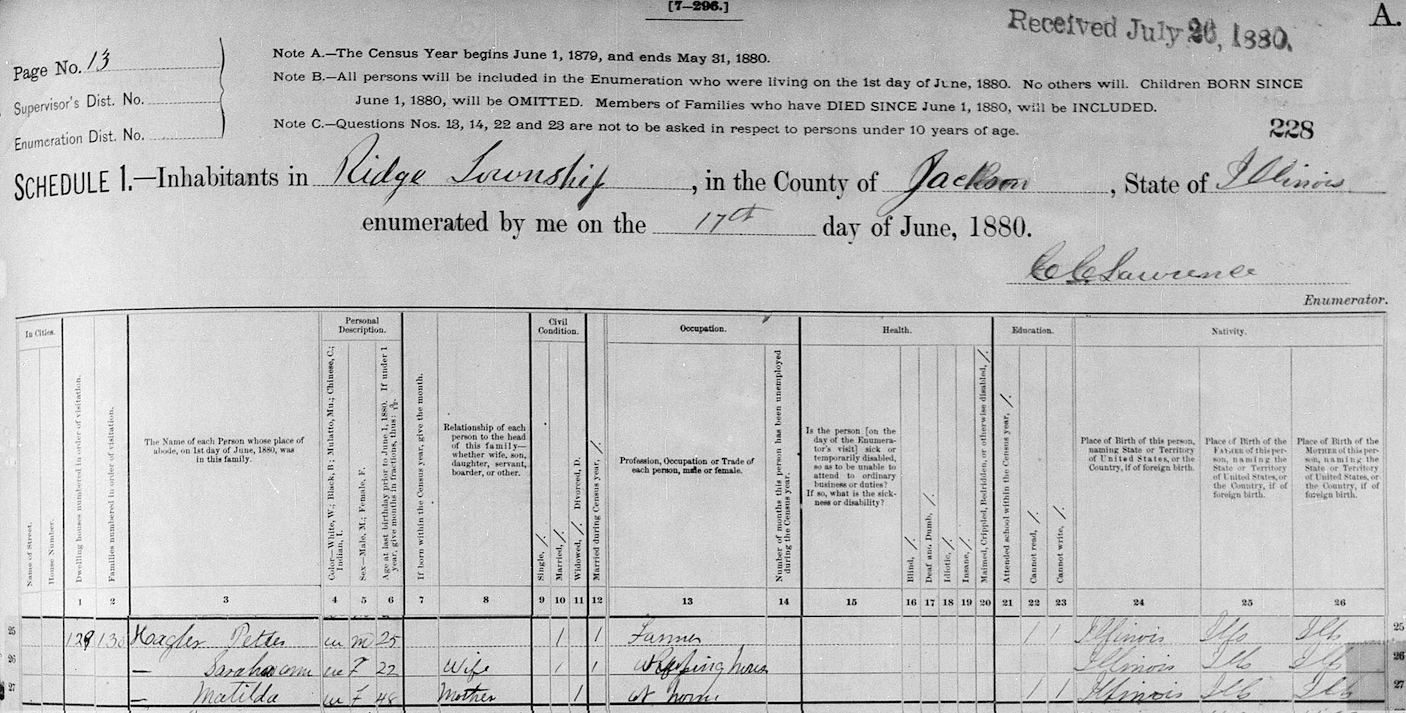 [7–296.]
A.
Received July 26, 1880.
Page No. 13
Supervisor's Dist. No.
Enumeration Dist. No.
Note A.—The Census Year begins June 1, 1879, and ends May 31, 1880.
Note B.—All persons will be included in the Enumeration who were living on the 1st day of June, 1880. No others will. Children BORN SINCE
June 1, 1880, will be OMITTED. Members of Families who have DIED SINCE June 1, 1880, will be INCLUDED.
Note C.—Questions Nos. 13, 14, 22 and 23 are not to be asked in respect to persons under 10 years of age.
228
SCHEDULE 1.—Inhabitants in Ridge Township, in the County of Jackson, State of Illinois
enumerated by me on the 17th day of June, 1880.
C C Lawrence
Enumerator.
In Cities.
Name of Street.
House Number.
Dwelling houses numbered in order of visitation.
Families numbered in order of visitation.
The Name of each Person whose place of
abode, on 1st day of June, 1880, was
in this family.
Personal
Description.
Color—White, W.; Black, B; Mulatto, Mu.; Chinese, C.;
Indian, I.
Sex—Male, M.; Female, F.
Age at last birthday prior to June 1, 1880. If under 1
year, give months in fractions, thus:
If born within the Census year, give the month.
Relationship of each
person to the head
of this family—
whether wife, son,
daughter, servant,
boarder, or other.
Civil
Condition.
Single, /.
Married, /.
Widowed, /. Divorced, D.
Married during Census year, /.
Occupation.
Profession, Occupation or Trade of
each person, male or female.
Number of months this person has been unemployed
during the Census year.
Health.
Is the person [on the
day of the Enumera-
tor's visit] sick or
temporarily disabled,
so as to be unable to
attend to ordinary
business or duties?
If so, what is the sick-
ness or disability?
Blind, /.
Deaf and Dumb, /.
Idiotic, /.
Insane, /.
Maimed, Crippled, Bedridden, or otherwise disabled, /.
Education.
Attended school within the Census year, /.
Cannot read, /.
Cannot write, /.
Nativity.
Place of Birth of this person,
naming State or Territory
of United States, or the
Country, if of foreign birth.
Place of Birth of the
FATHER of this per-
son, naming the
State or Territory
of United States, or
the Country, if of
foreign birth.
Place of Birth of the
MOTHER of this per-
son, naming the
State or Territory
of United States, or
the Country, if of
foreign birth.
1 2 3 4 5 6 7 8 9 10 11 12 13 14 15 16 17 18 19 20 21 22 23 24 25 26
25 129 130 Hagler Petter w m 25 / / Farmer / / Illinois Ills Ills 25
26 — Sarah ann w F 22 Wife / / Keeping house Illinois Ills Ills 26
27 — Matilda w F 48 Mother / At home / / Illinois Ills Ills 27